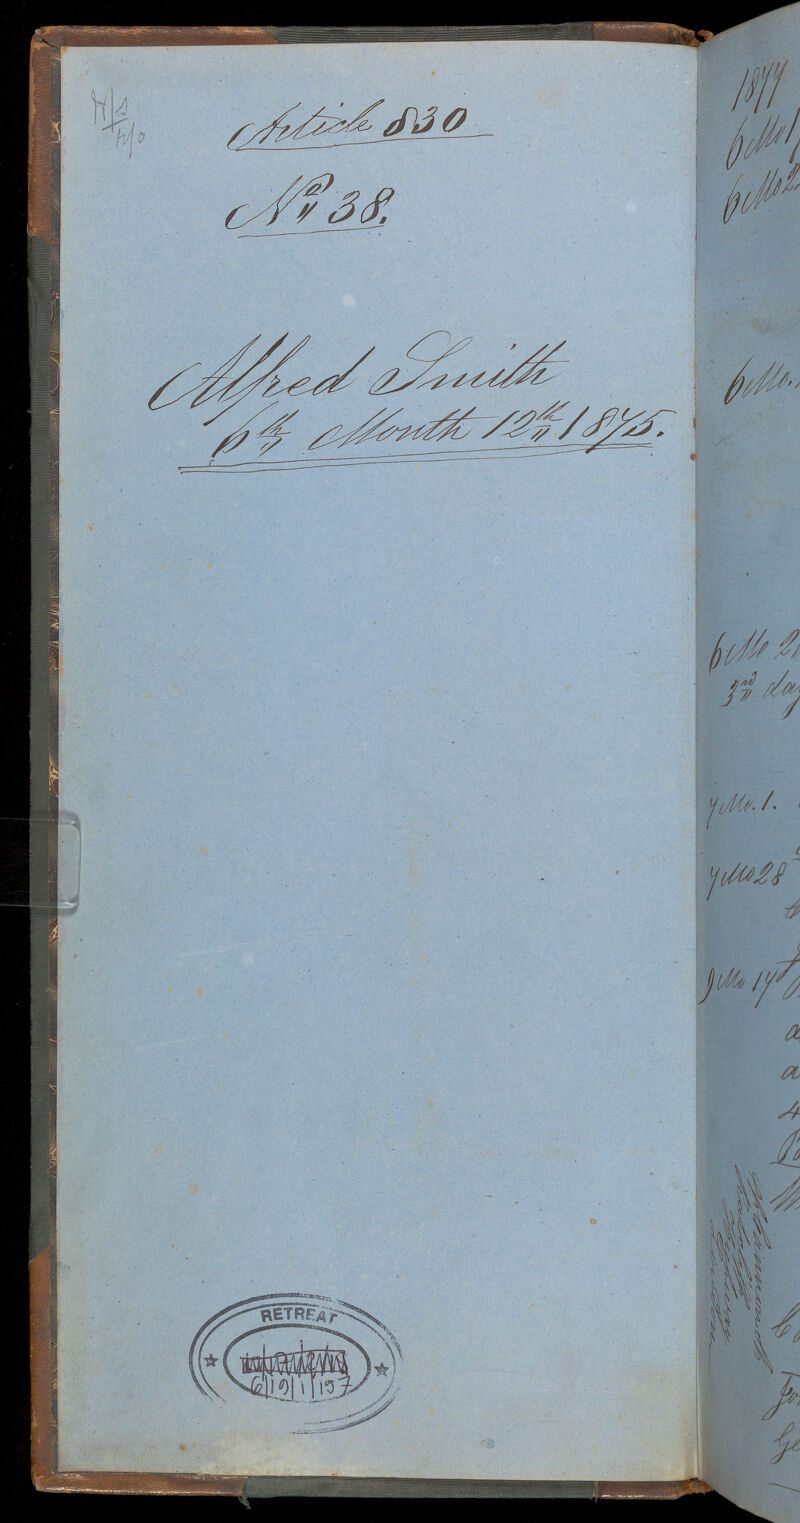 Article 830
No 38.
Alfred Smith
6th Month 12th 1875.
RETREAT
6/19/1/157
1877
6 Mo 1
6 Mo 2
6 Mo.
6 Mo 2
3rd day
7 Mo. 1.
7 Mo 28
9 Mo 14